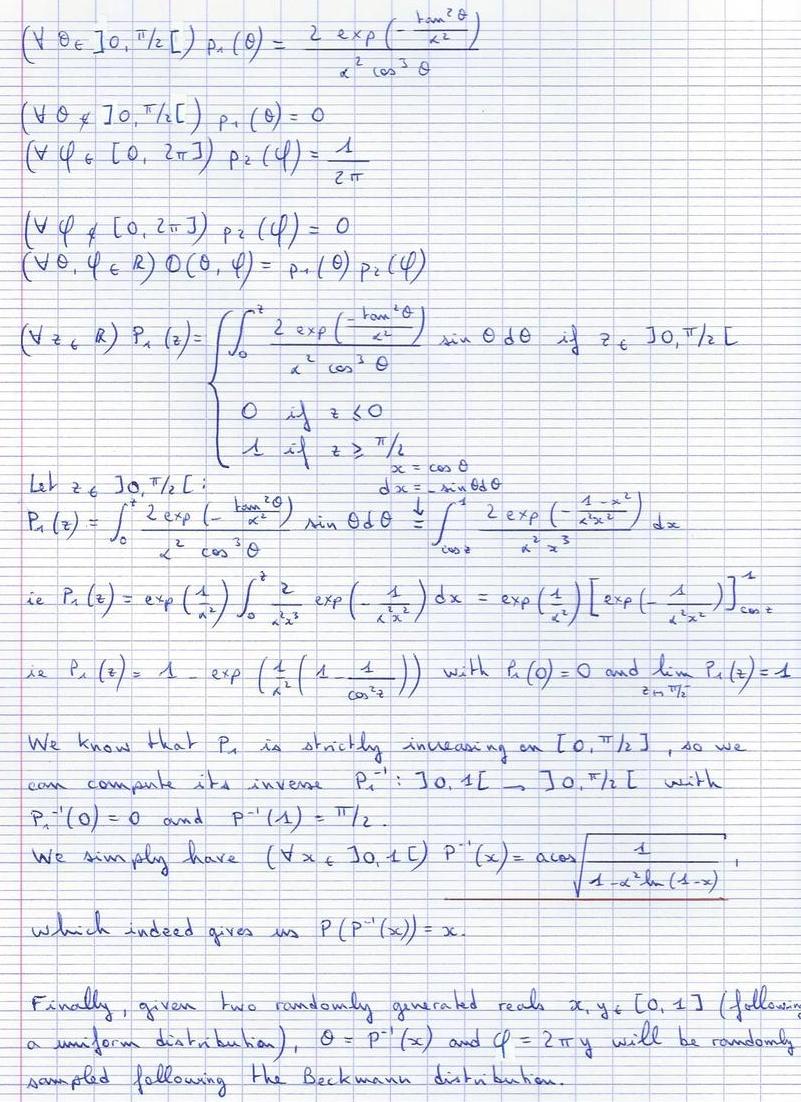 (∀ θ ∈ ]0, π/2[) p₁(θ) = 2 exp(-tan²θ/α²) / (α² cos³ θ)
(∀ θ ∉ ]0, π/2[) p₁(θ) = 0
(∀ φ ∈ [0, 2π]) p₂(φ) = 1/2π
(∀ φ ∉ [0, 2π]) p₂(φ) = 0
(∀ θ, φ ∈ ℝ) D(θ, φ) = p₁(θ) p₂(φ)
(∀ z ∈ ℝ) P₁(z) = { ∫₀ᶻ 2 exp(-tan²θ/α²) / (α² cos³ θ) sin θ dθ if z ∈ ]0, π/2[
0 if z ≤ 0
1 if z ≥ π/2
x = cos θ
Let z ∈ ]0, π/2[ : dx = -sin θ dθ
↓
P₁(z) = ∫₀ᶻ 2 exp(-tan²θ/α²) / (α² cos³θ) sin θ dθ = ∫_{cos z}^1 2 exp(-(1-x²)/(α²x²)) / (α² x³) dx
ie P₁(z) = exp(1/α²) ∫₀ᶻ 2/(α²x³) exp(-1/(α²x²)) dx = exp(1/α²) [exp(-1/(α²x²))]_{cos z}^1
ie P₁(z) = 1 - exp(1/α² (1 - 1/cos²z)) with P₁(0) = 0 and lim_{z→π/2} P₁(z) = 1
We know that P₁ is strictly increasing on [0, π/2], so we
can compute its inverse P₁⁻¹ : ]0, 1[ → ]0, π/2[ with
P₁⁻¹(0) = 0 and P⁻¹(1) = π/2.
We simply have (∀ x ∈ ]0, 1[) P⁻¹(x) = acos √(1 / (1 - α² ln(1-x))),
which indeed gives us P(P⁻¹(x)) = x.
Finally, given two randomly generated reals x, y ∈ [0, 1] (following
a uniform distribution), θ = P⁻¹(x) and φ = 2π y will be randomly
sampled following the Beckmann distribution.